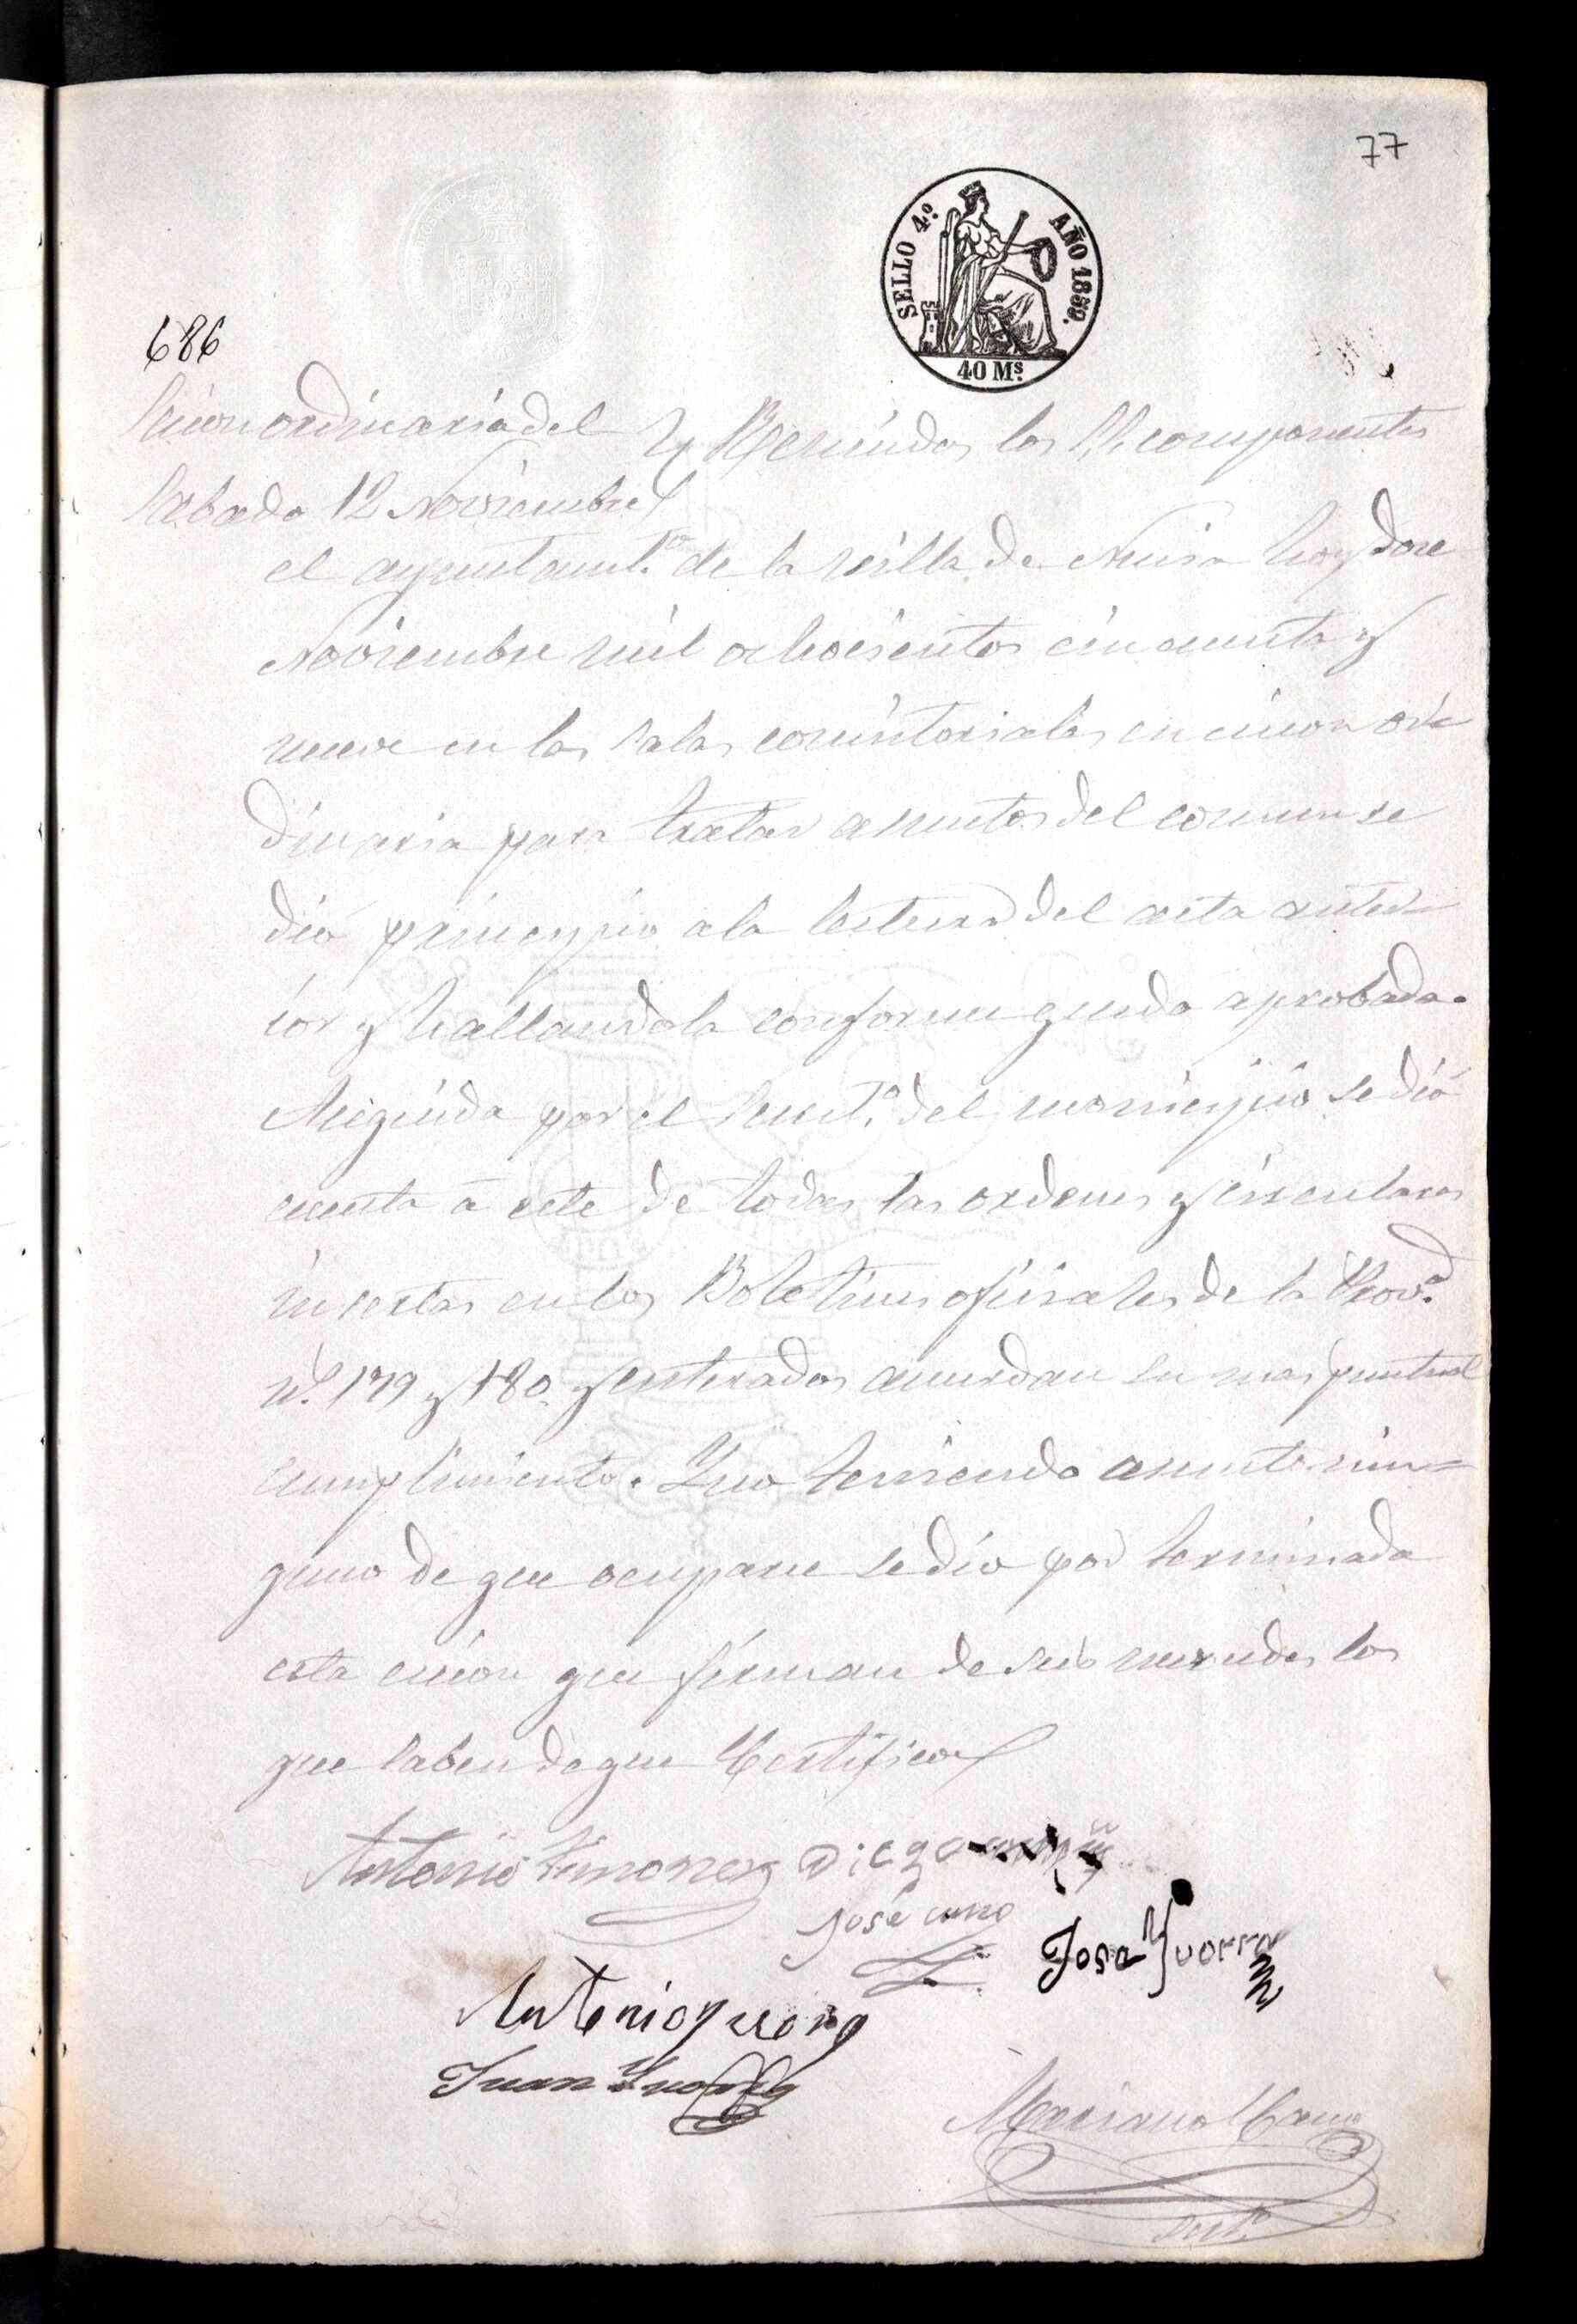 77
SELLO 4º. AÑO 1859.
40 Ms.
686
Sicion ordinaria del
Sabado 12 Noviembre
Reunidos los SS. componentes
el ayuntamto. de la villa de Nerva hoy doce
Noviembre mil ochocientos cincuenta y
nueve en las salas consistoriales en cicion or=
dinaria para tratar asuntos del comun se
dió principio a la lectura del acta anter=
ior y hallandola conforme queda aprobada.
Seguida por el Secret.º del municipio se dió
cuenta á este de todas las ordenes y circulares
incertas en los Boletines ofisiales de la Prov.ª
nº. 179 y 180. y enterados acuerdan su mas puntual
cumplimiento. Y no teniendo asunto nin=
guno de que ocuparse se dio por terminada
esta cicion que firman de sus mercedes los
que saben de que Certifico
Antonio Ximenez Diego
José cano
Jose Guorra
Antonio
Juan
Mariano Cano
Srio.